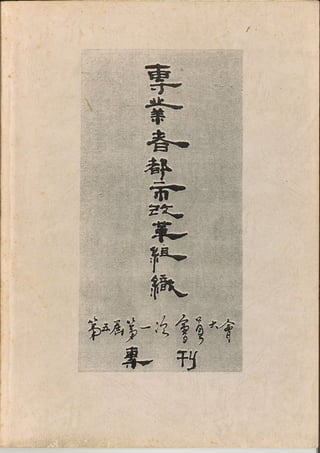 專業者都市改革組織
第五屆第一次會員大會
專刊